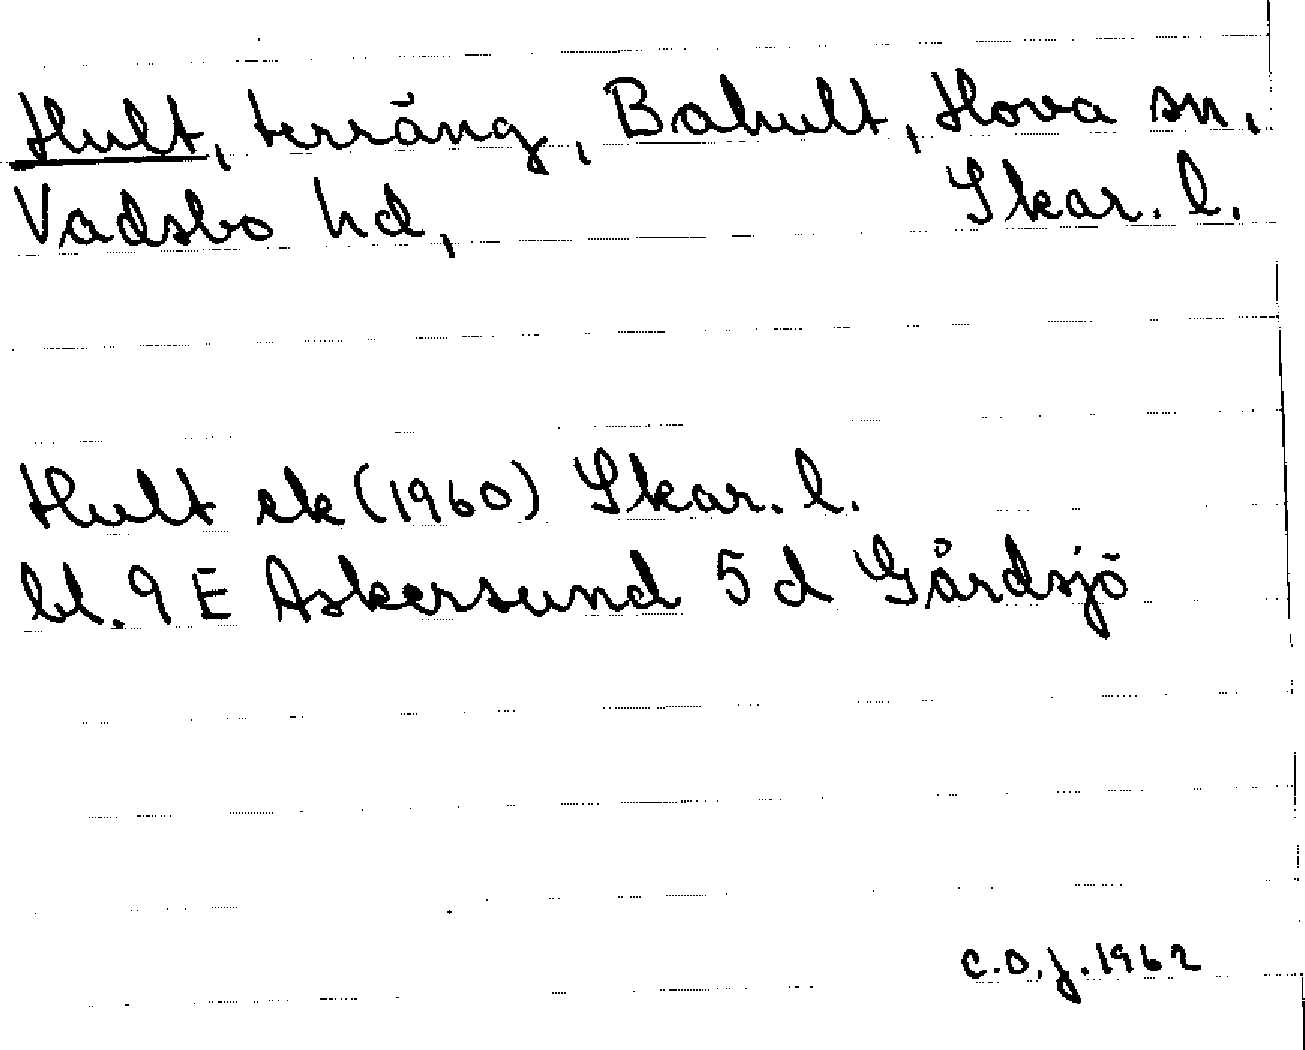 Hult, terräng, Bahult, Hova sn,
Vadsbo hd, Skar. l.
Hult ek (1960) Skar. l.
bl. 9 E Askersund 5 d Gårdsjö
C.O.J. 1962